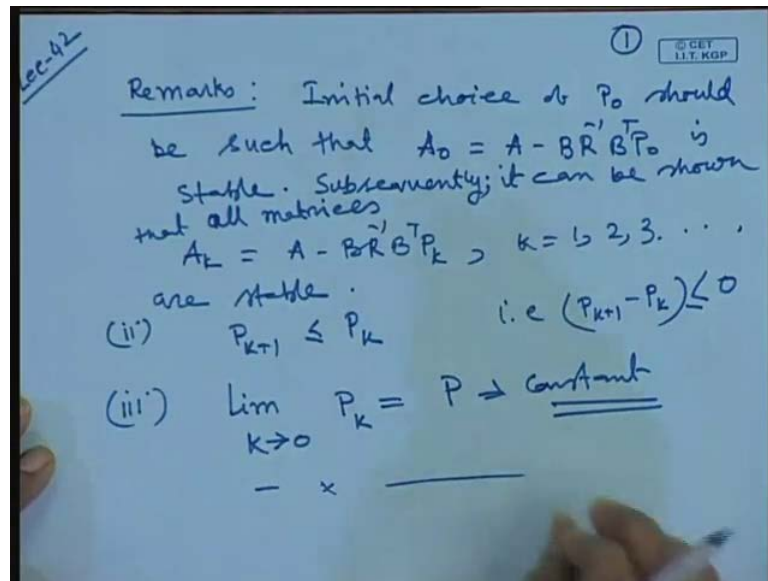 Lec-42
①
© CET
I.I.T. KGP
Remarks: Initial choice of P₀ should
be such that A₀ = A - BR⁻¹BᵀP₀ is
stable. Subsequently; it can be shown
that all matrices
Aₖ = A - BR⁻¹BᵀPₖ, k = 1, 2, 3. . . .
are stable.
(ii) Pₖ₊₁ ≤ Pₖ i.e (Pₖ₊₁ - Pₖ) ≤ 0
(iii) Lim Pₖ = P → constant
k→0
— x —